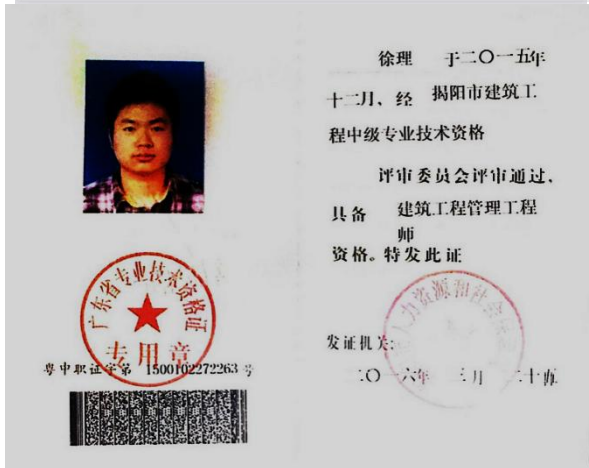 徐理 于二〇一五年
十二月、经 揭阳市建筑工
程中级专业技术资格
评审委员会评审通过、
具备 建筑工程管理工程
师
资格。特发此证
广东省专业技术资格证
专用章
粤中职证字第 1500102272263 号
人力资源和社会
发证机关:
二〇一六年 三月 二十